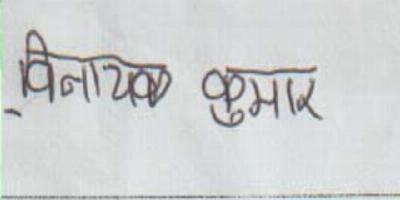 विनायक कुमार